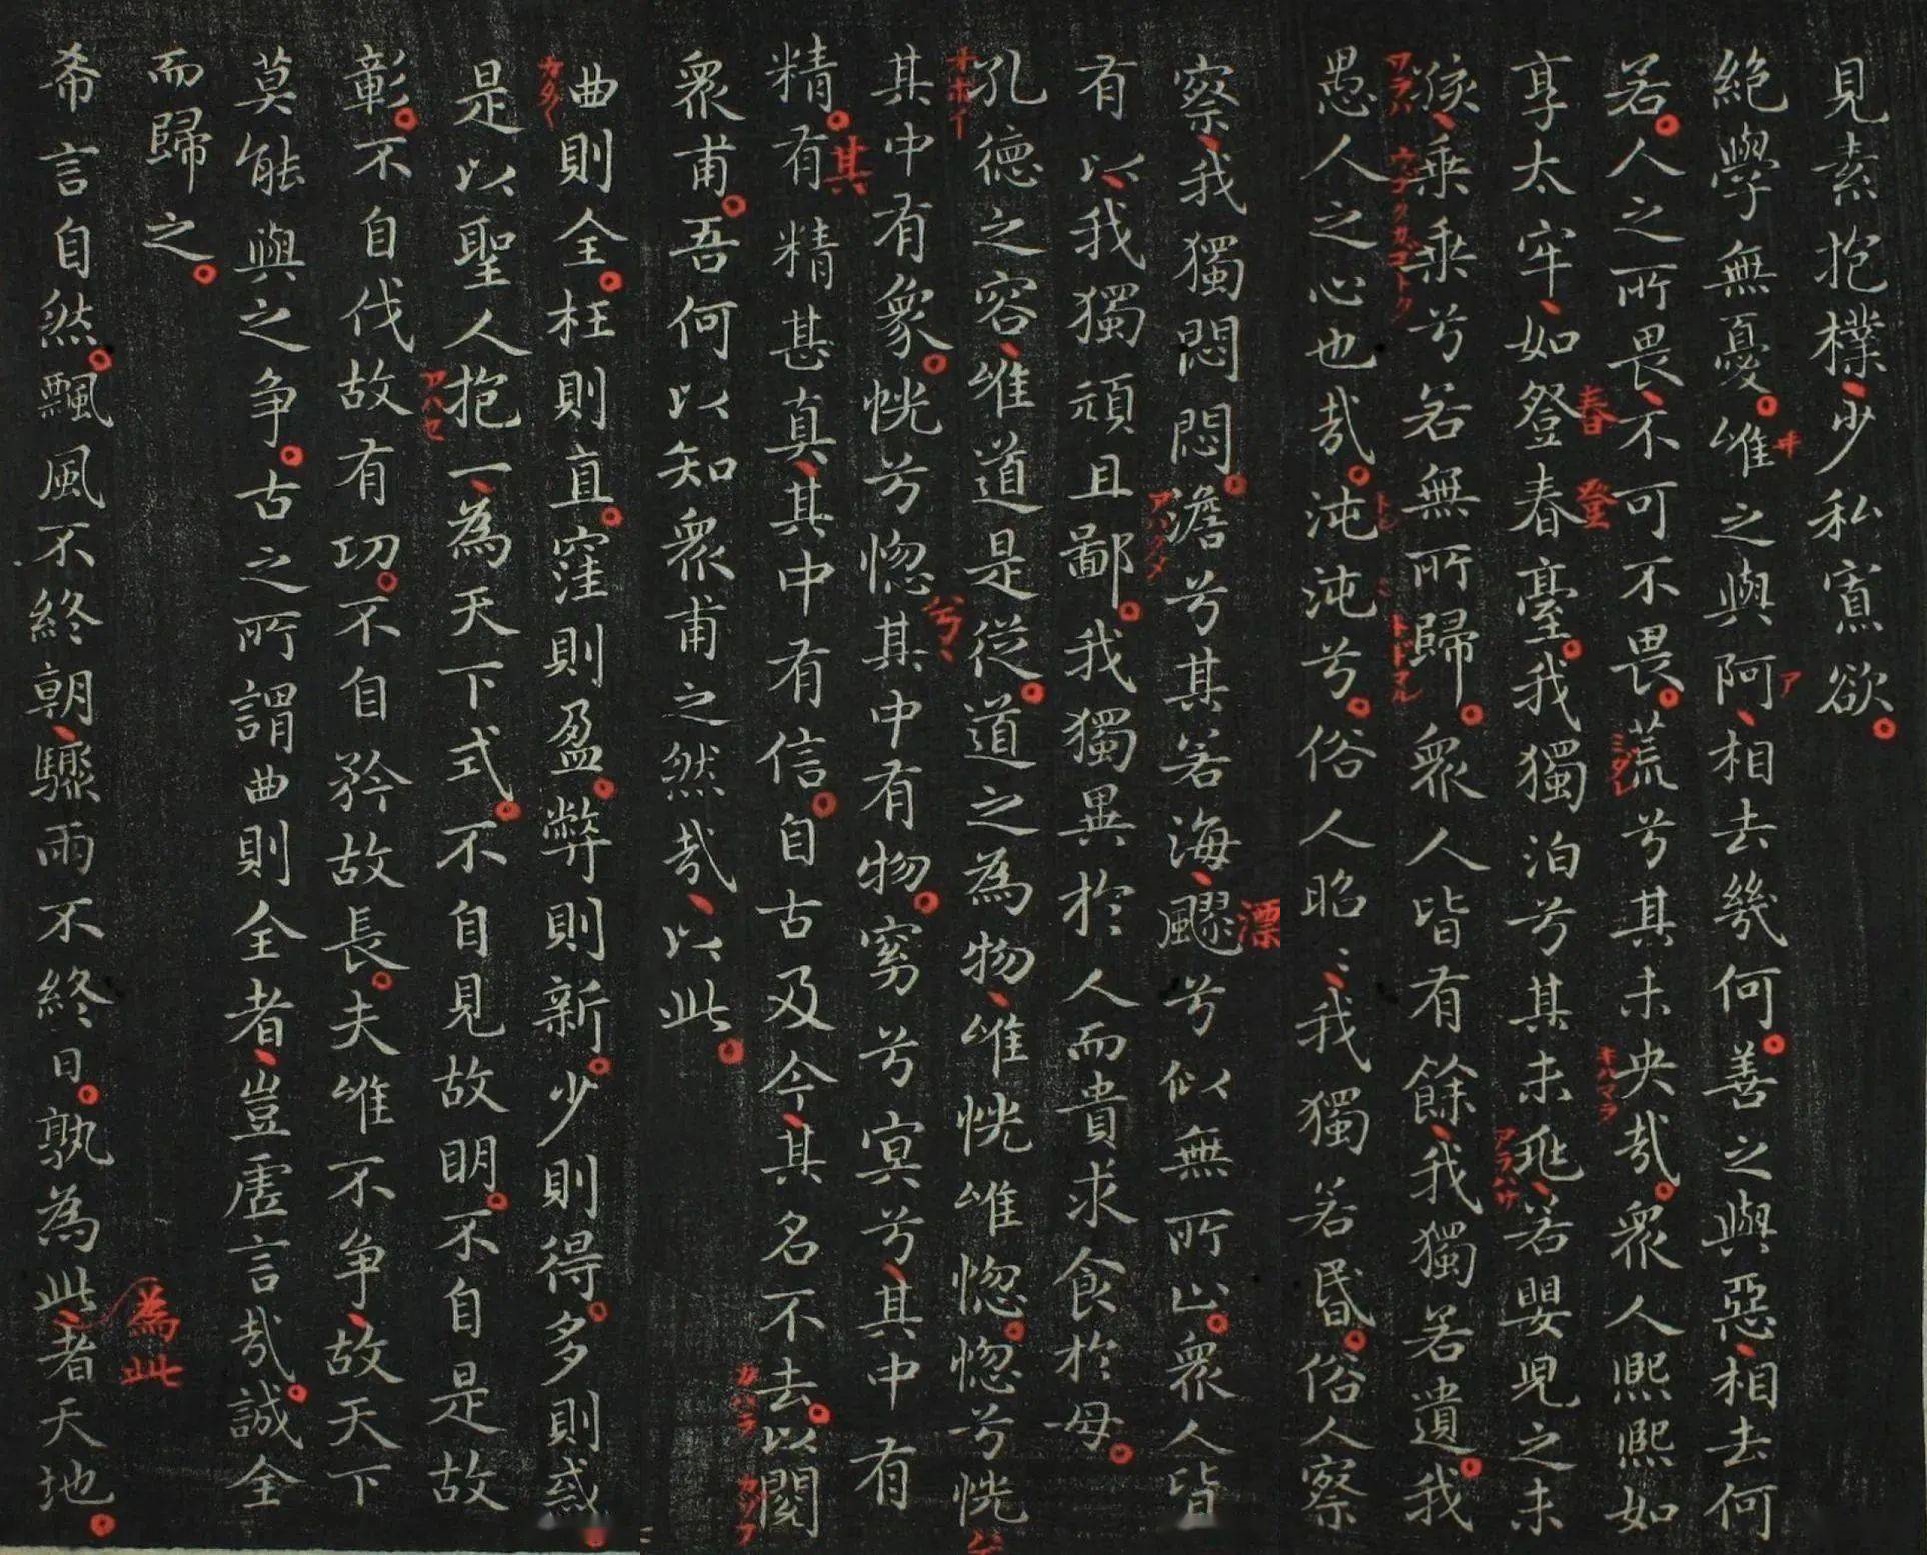 見素抱樸少私寡欲
絕學無憂唯之與阿相去幾何善之與惡相去何
若人之所畏不可不畏荒兮其未央哉衆人熙熙如
享太牢如登春臺我獨泊兮其未兆若嬰兒之未
孩乗乗兮若無所歸衆人皆有餘我獨若遺我
愚人之心也哉沌沌兮俗人昭〻我獨若昬俗人察
察我獨悶悶澹兮其若海飂兮似無所止衆人皆
有以我獨頑且鄙我獨異於人而貴求食於母
孔德之容唯道是從道之為物唯恍唯惚惚兮恍
其中有象恍兮惚其中有物窈兮冥兮其中有
精有精甚真其中有信自古及今其名不去以閱
衆甫吾何以知衆甫之然哉以此
曲則全枉則直窪則盈弊則新少則得多則惑
是以聖人抱一為天下式不自見故明不自是故
彰不自伐故有功不自矜故長夫唯不爭故天下
莫能與之爭古之所謂曲則全者豈虛言哉誠全
而歸之
希言自然飄風不終朝驟雨不終日孰為此者天地
ヰ
ア
春
臺
ミダレ
キハマラ
アラハサ
ワラハ
ウゴクガゴトク
トドマル
漂
オホイ
兮
其
カハラ
アハセ
為此